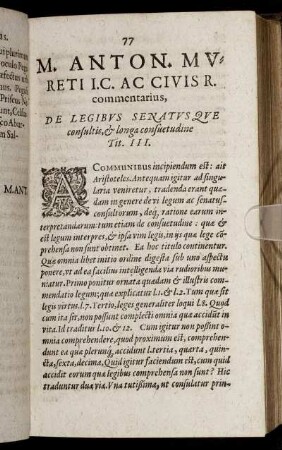 77
M. ANTON. MV-
RETI I.C. AC CIVIS R.
commentarius,
DE LEGIBVS SENATVSQVE
consultis, & longa consuetudine
Tit. III.
A COMMVNIBVS incipiendum est: ait
Aristoteles. Antequam igitur ad singu-
laria veniretur, tradenda erant quæ-
dam in genere de vi legum ac senatus-
consultorum, deq́, ratione earum in-
terpretandarum: tum etiam de consuetudine: quæ &
est legum interpres, & ipsa vim legis, in ijs quæ lege cō-
prehensa non sunt obtinet. Ea hoc titulo continentur.
Quæ omnia libet initio ordine digesta sub uno aspectu
ponere, vt ad ea facilius intelligenda via rudioribus mu-
niatur. Primo ponitur ornata quædam & illustris com-
mendatio legum: quæ explicatur l.1. & l.2. Tum quæ sit
legis virtus l.7. Tertio, leges generaliter loqui l.8. Quod
cum ita sit, non possunt complecti omnia quæ accidūt in
vita. Id traditur l.10. & 12. Cum igitur non possint o-
mnia comprehendere, quod proximum est, comprehen-
dunt ea quæ plerunq́, accidunt l.tertia, quarta, quin-
cta, sexta, decima. Quid igitur faciendum est, cum quid
accidit eorum quæ legibus comprehensa non sunt? Hic
traduntur duæ viæ. Vna tutissima, ut consulatur prin-